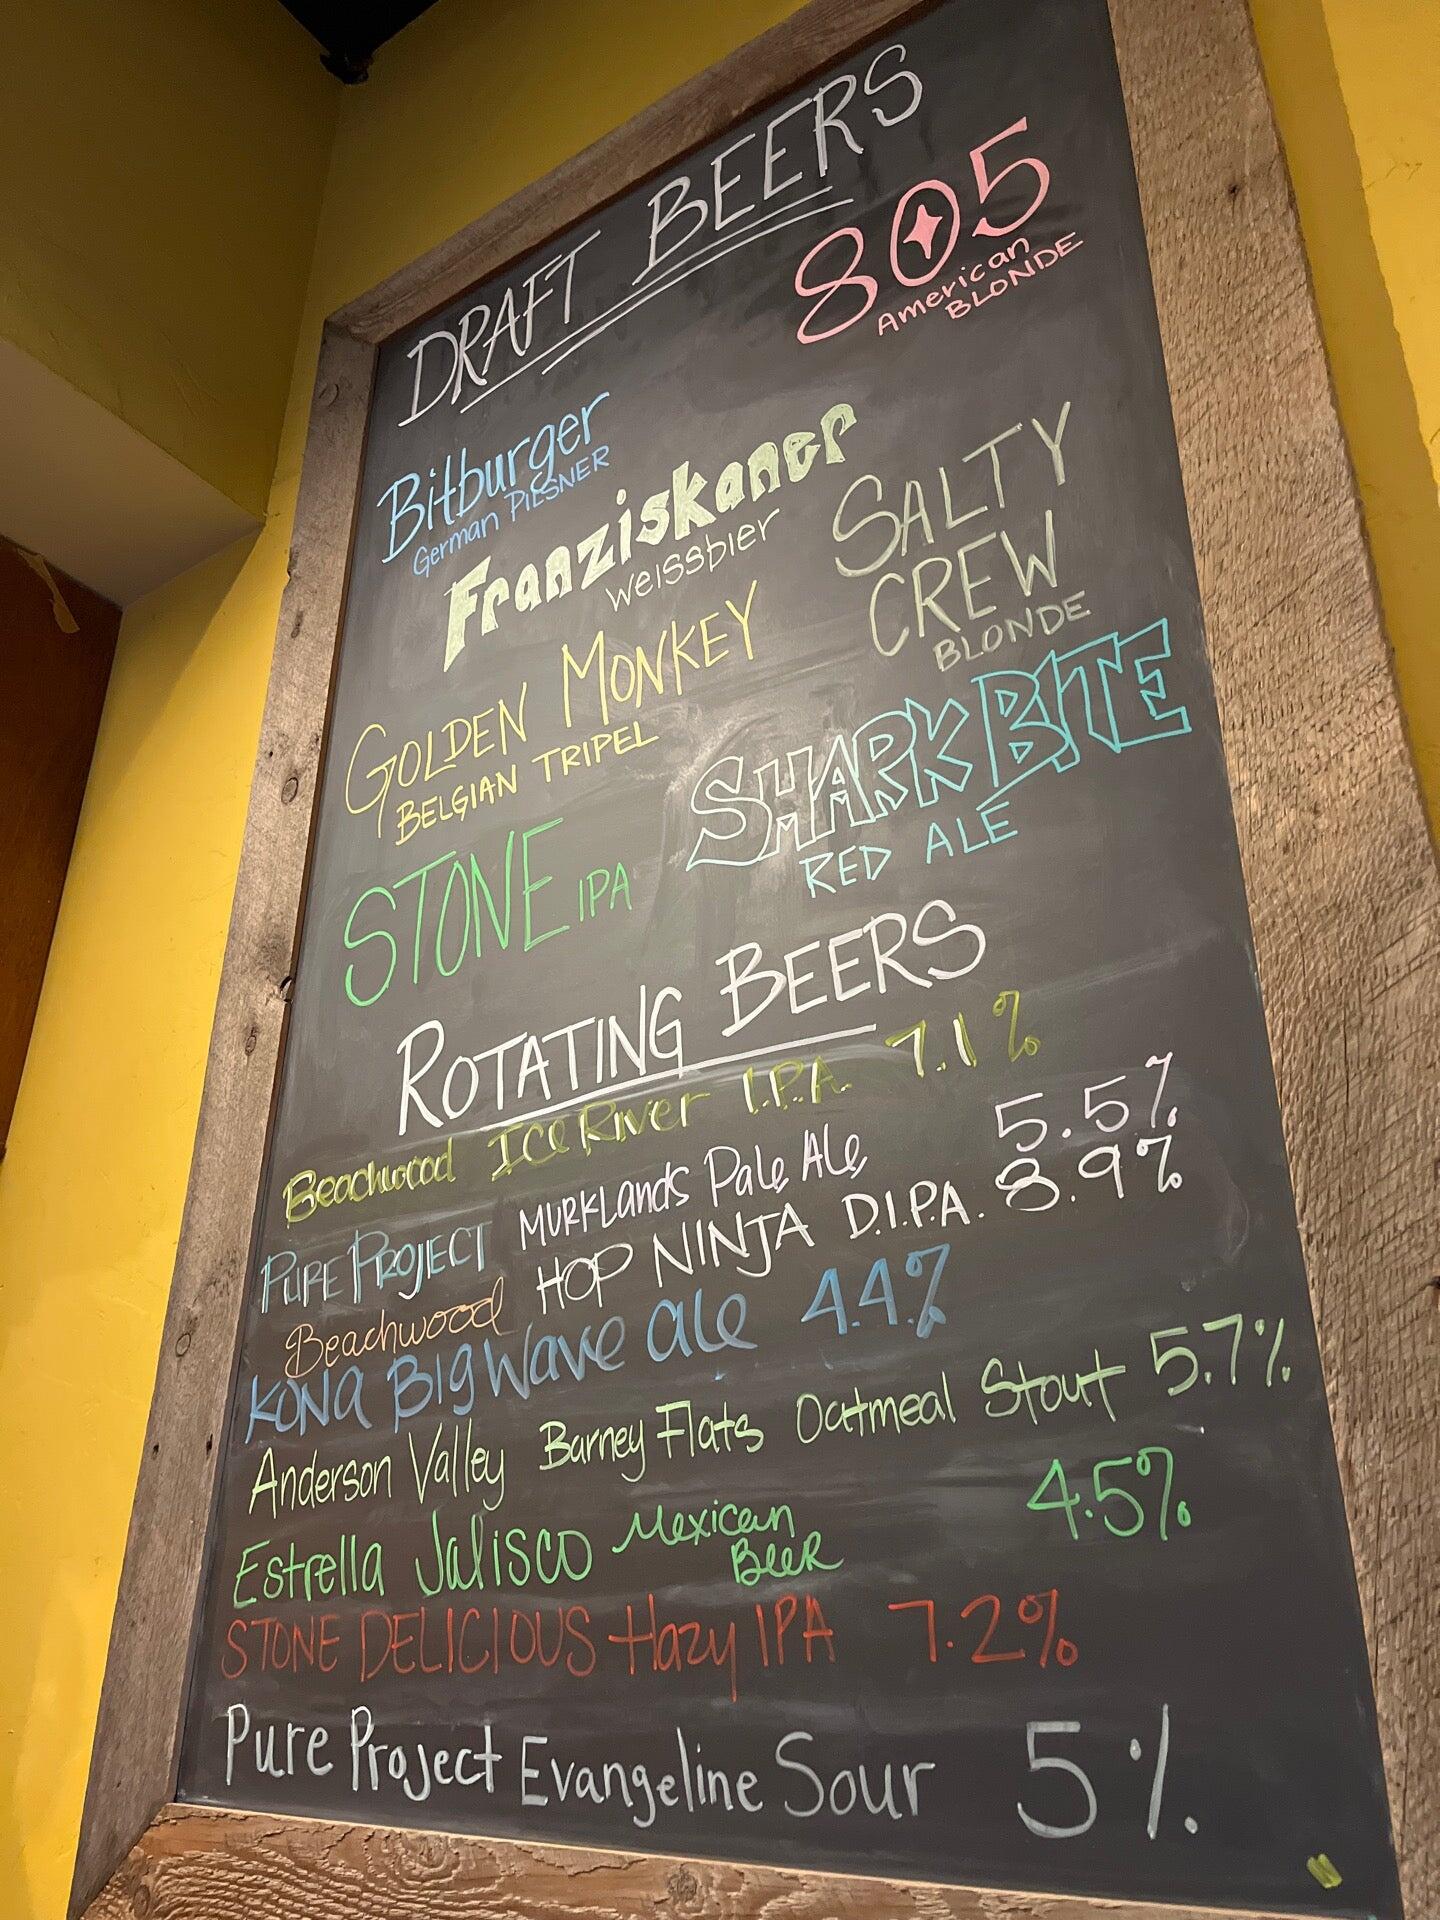 DRAFT BEERS
805
American
BLONDE
Bitburger
German PILSNER
Franziskaner
weissbier
SALTY
CREW
BLONDE
GOLDEN MONKEY
BELGIAN TRIPEL
SHARK BITE
RED ALE
STONE IPA
ROTATING BEERS
Beachwood ICE RIVER I.P.A. 7.1%
PURE PROJECT MURKLANDS PALE ALE 5.5%
Beachwood HOP NINJA D.I.P.A. 8.9%
KONA BIG WAVE ALE 4.4%
Anderson Valley Barney Flats Oatmeal Stout 5.7%
Estrella Jalisco Mexican 4.5%
BEER
STONE DELICIOUS Hazy IPA 7.2%
Pure Project Evangeline Sour 5%